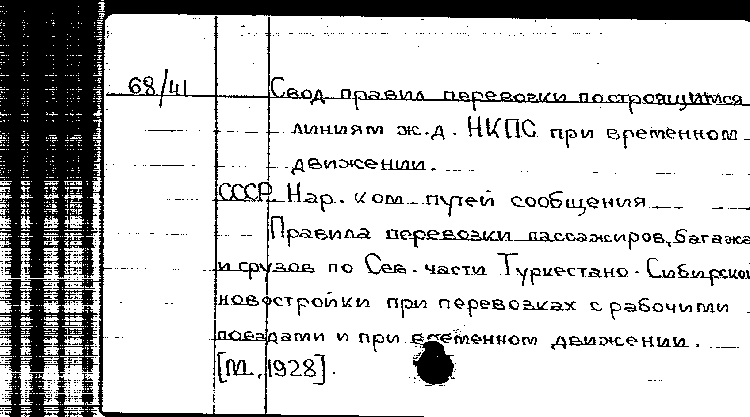 68/41 Свод правил перевозки по строящимся
линиям ж.д. НКПС при временном
движении.
СССР. Нар. ком. путей сообщения
Правила перевозки пассажиров, багажа
и грузов по Сев. части Туркестано-Сибирской
новостройки при перевозках с рабочими
поездами и при временном движении.
[М., 1928].